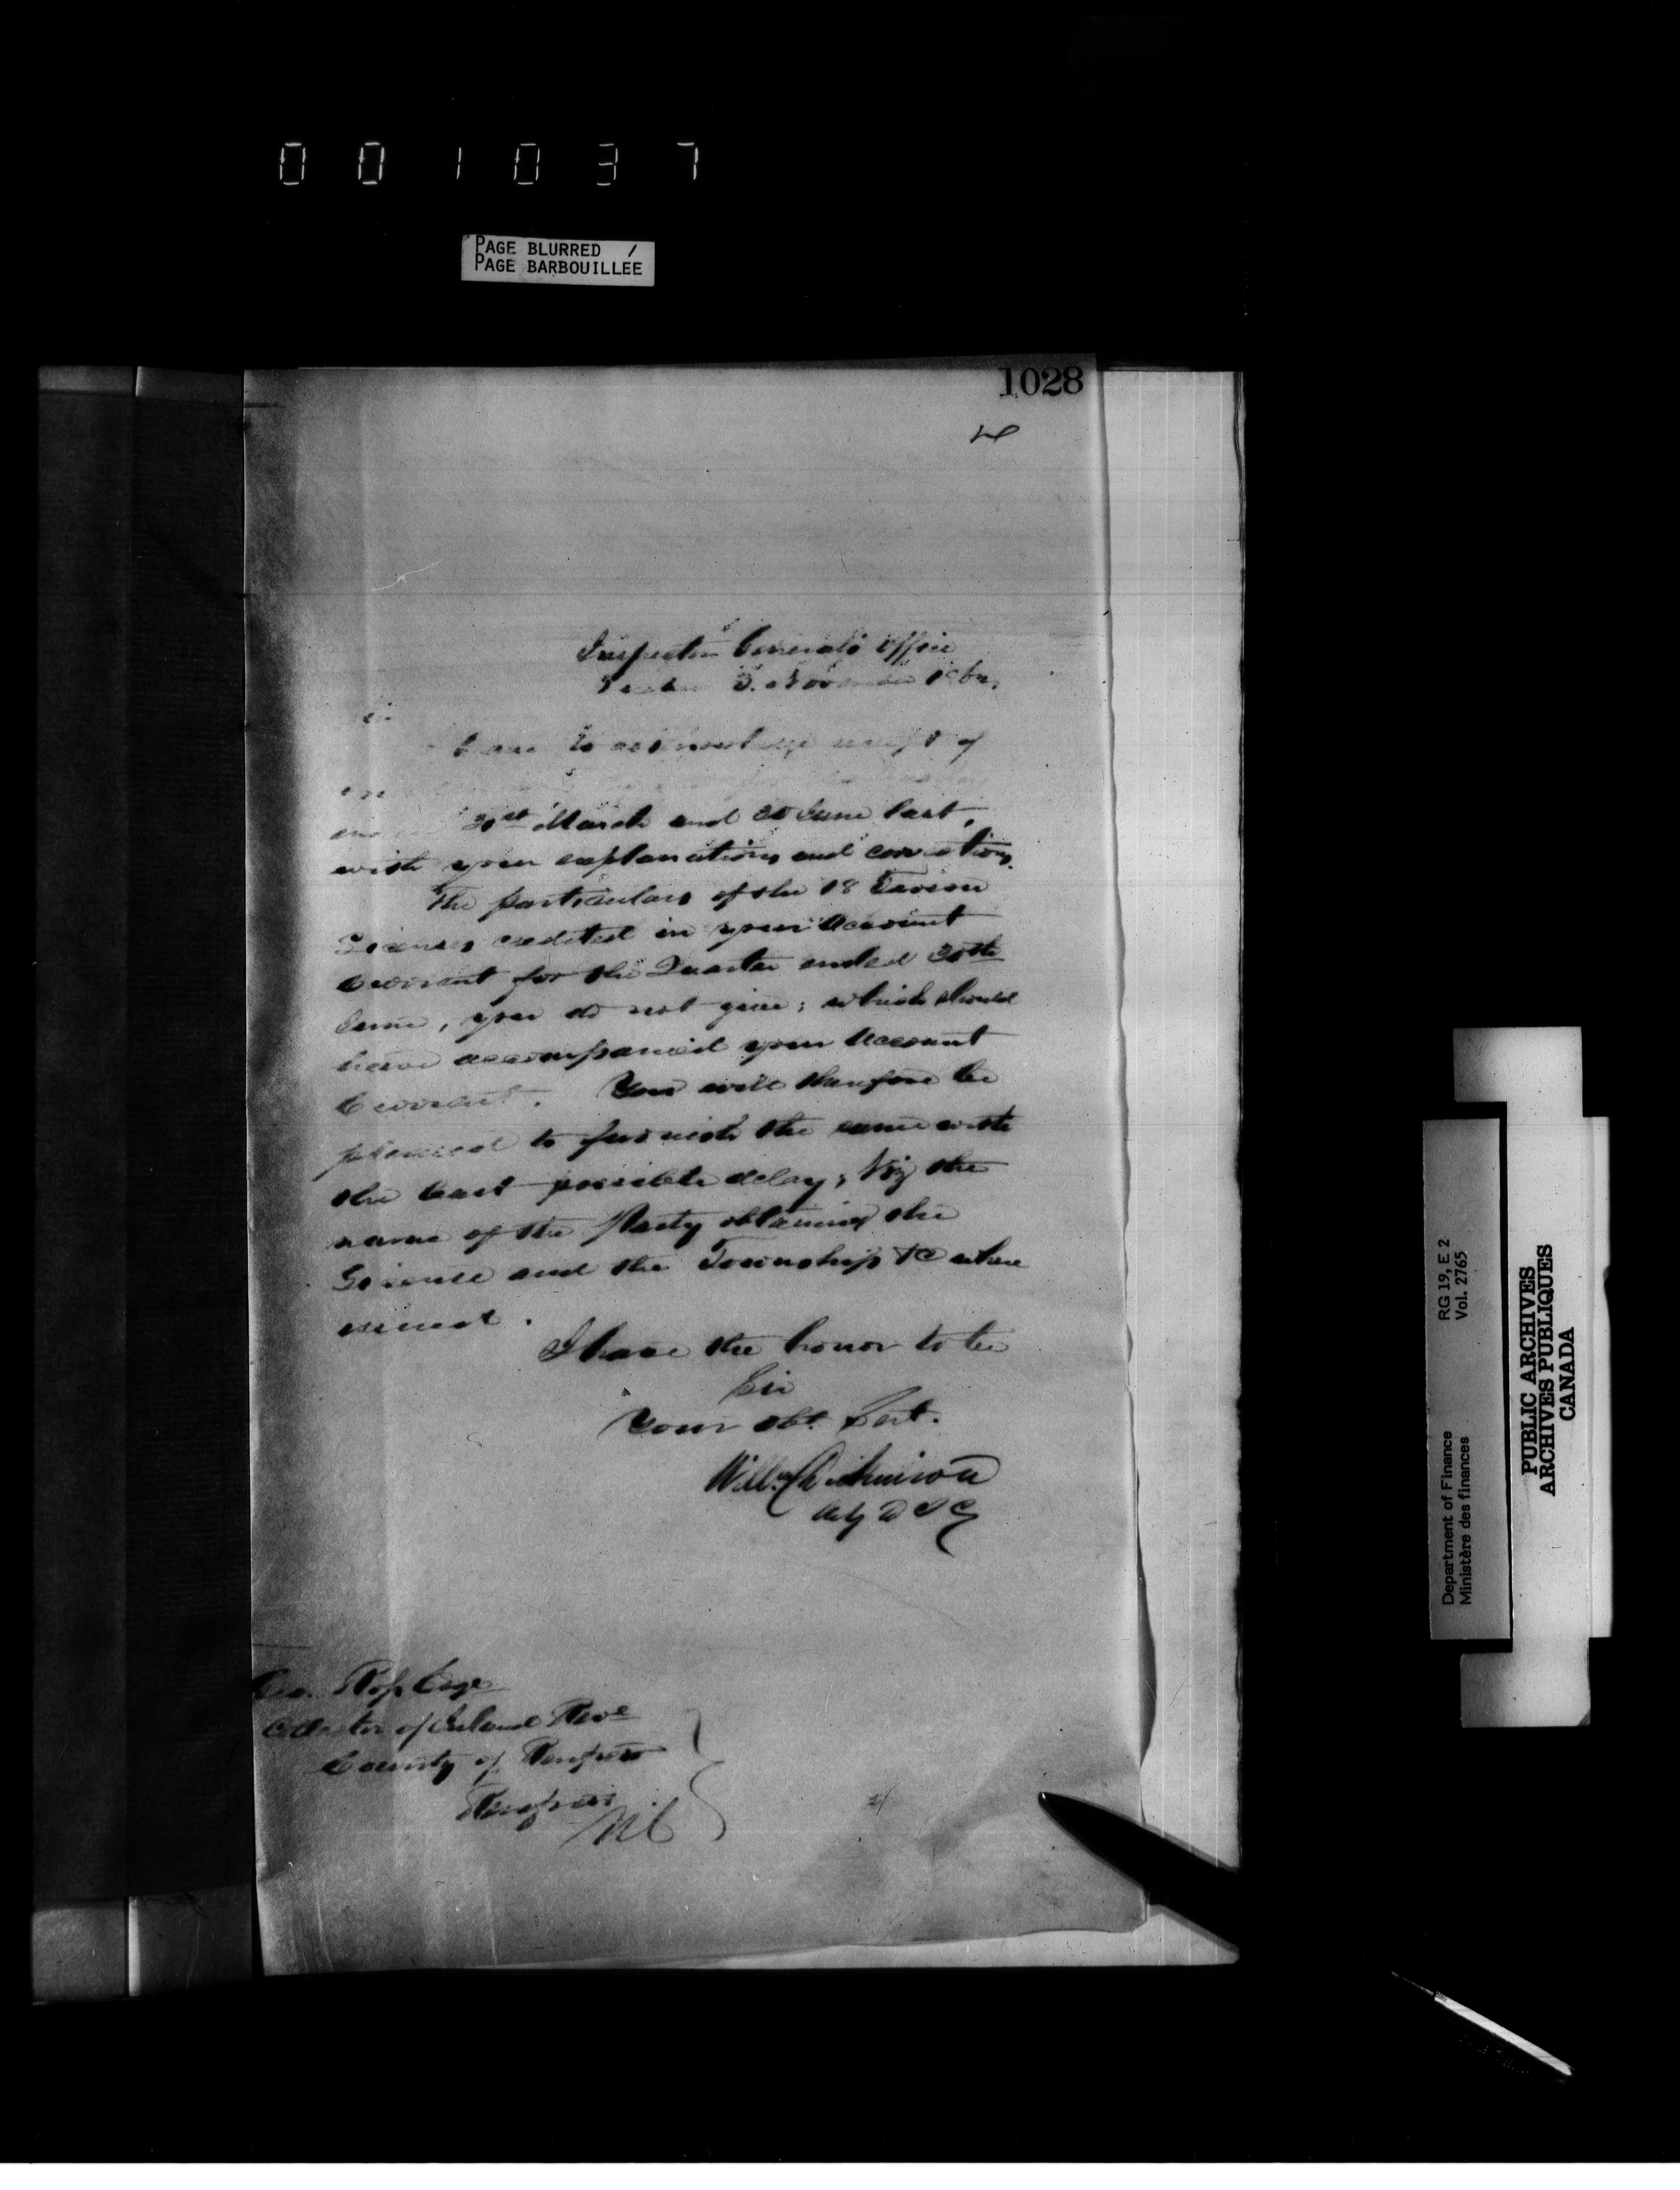 001037
PAGE BLURRED /
PAGE BARBOUILLEE
1028
Inspector General's Office
3. November
to acknowledge receipt of
31st March and 30 June last,
with your explanations and corrections.
The particulars of the 18 Tavern
Licenses credited in your Account
Current for the Quarter ended 30th
June, you do not give; which should
have accompanied your Account
Current. You will therefore be
pleased to furnish the same with
the least possible delay; Viz the
name of the Party obtaining the
License and the Township &c where
issued.
I have the honor to be
Sir
Your obt. Servt.
Willm Dickinson
Actg D I G
Geo. Ross Esqr
Collector of Inland Reve
County of Renfrew
Renfrew
RG 19, E 2
Vol. 2765
Department of Finance
Ministère des finances
PUBLIC ARCHIVES
ARCHIVES PUBLIQUES
CANADA